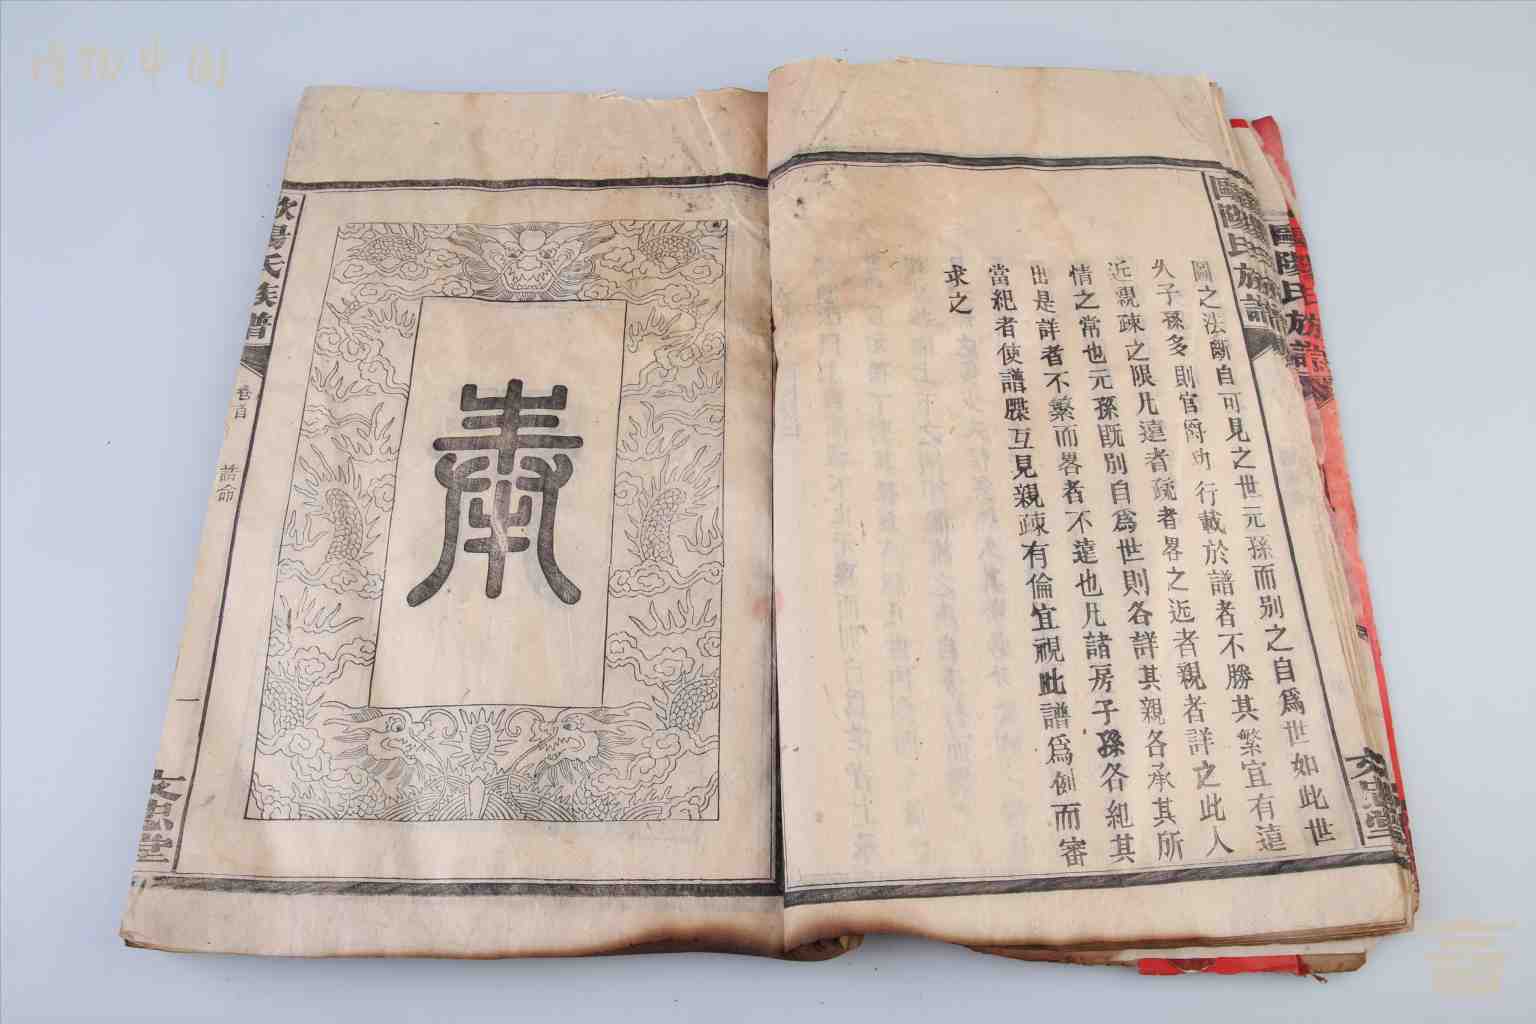 歐陽氏族譜
文忠堂
圖之法斷自可見之世元孫而别之自爲世如此世
久子孫多則官爵功行載於譜者不勝其繁宜有遠
近親疎之限凡遠者疏者畧之近者親者詳之此人
情之常也元孫旣別自爲世則各詳其親各承其所
出是詳者不繁而畧者不遺也凡諸房子孫各紀其
當紀者使譜牒互見親疎有倫宜視此譜爲例而審
求之
奉
歐陽氏族譜
卷首
誥命
一
文忠堂
歐陽氏族譜